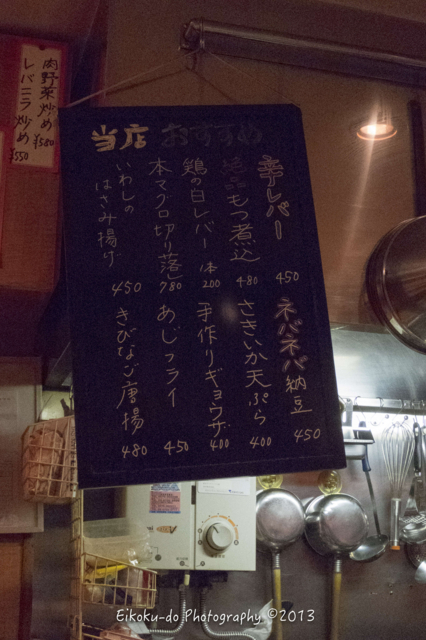 当店 おすすめ
辛レバー 450
もつ煮込 480
鶏の白レバー 1本 200
本マグロ切り落し 780
いわしのはさみ揚げ 450
ネバネバ納豆 450
さきいか天ぷら 400
手作りギョウザ 400
あじフライ 450
きびなご唐揚 480
肉野菜炒め ¥580
レバニラ炒め ¥550
Eikoku-do Photography ©2013